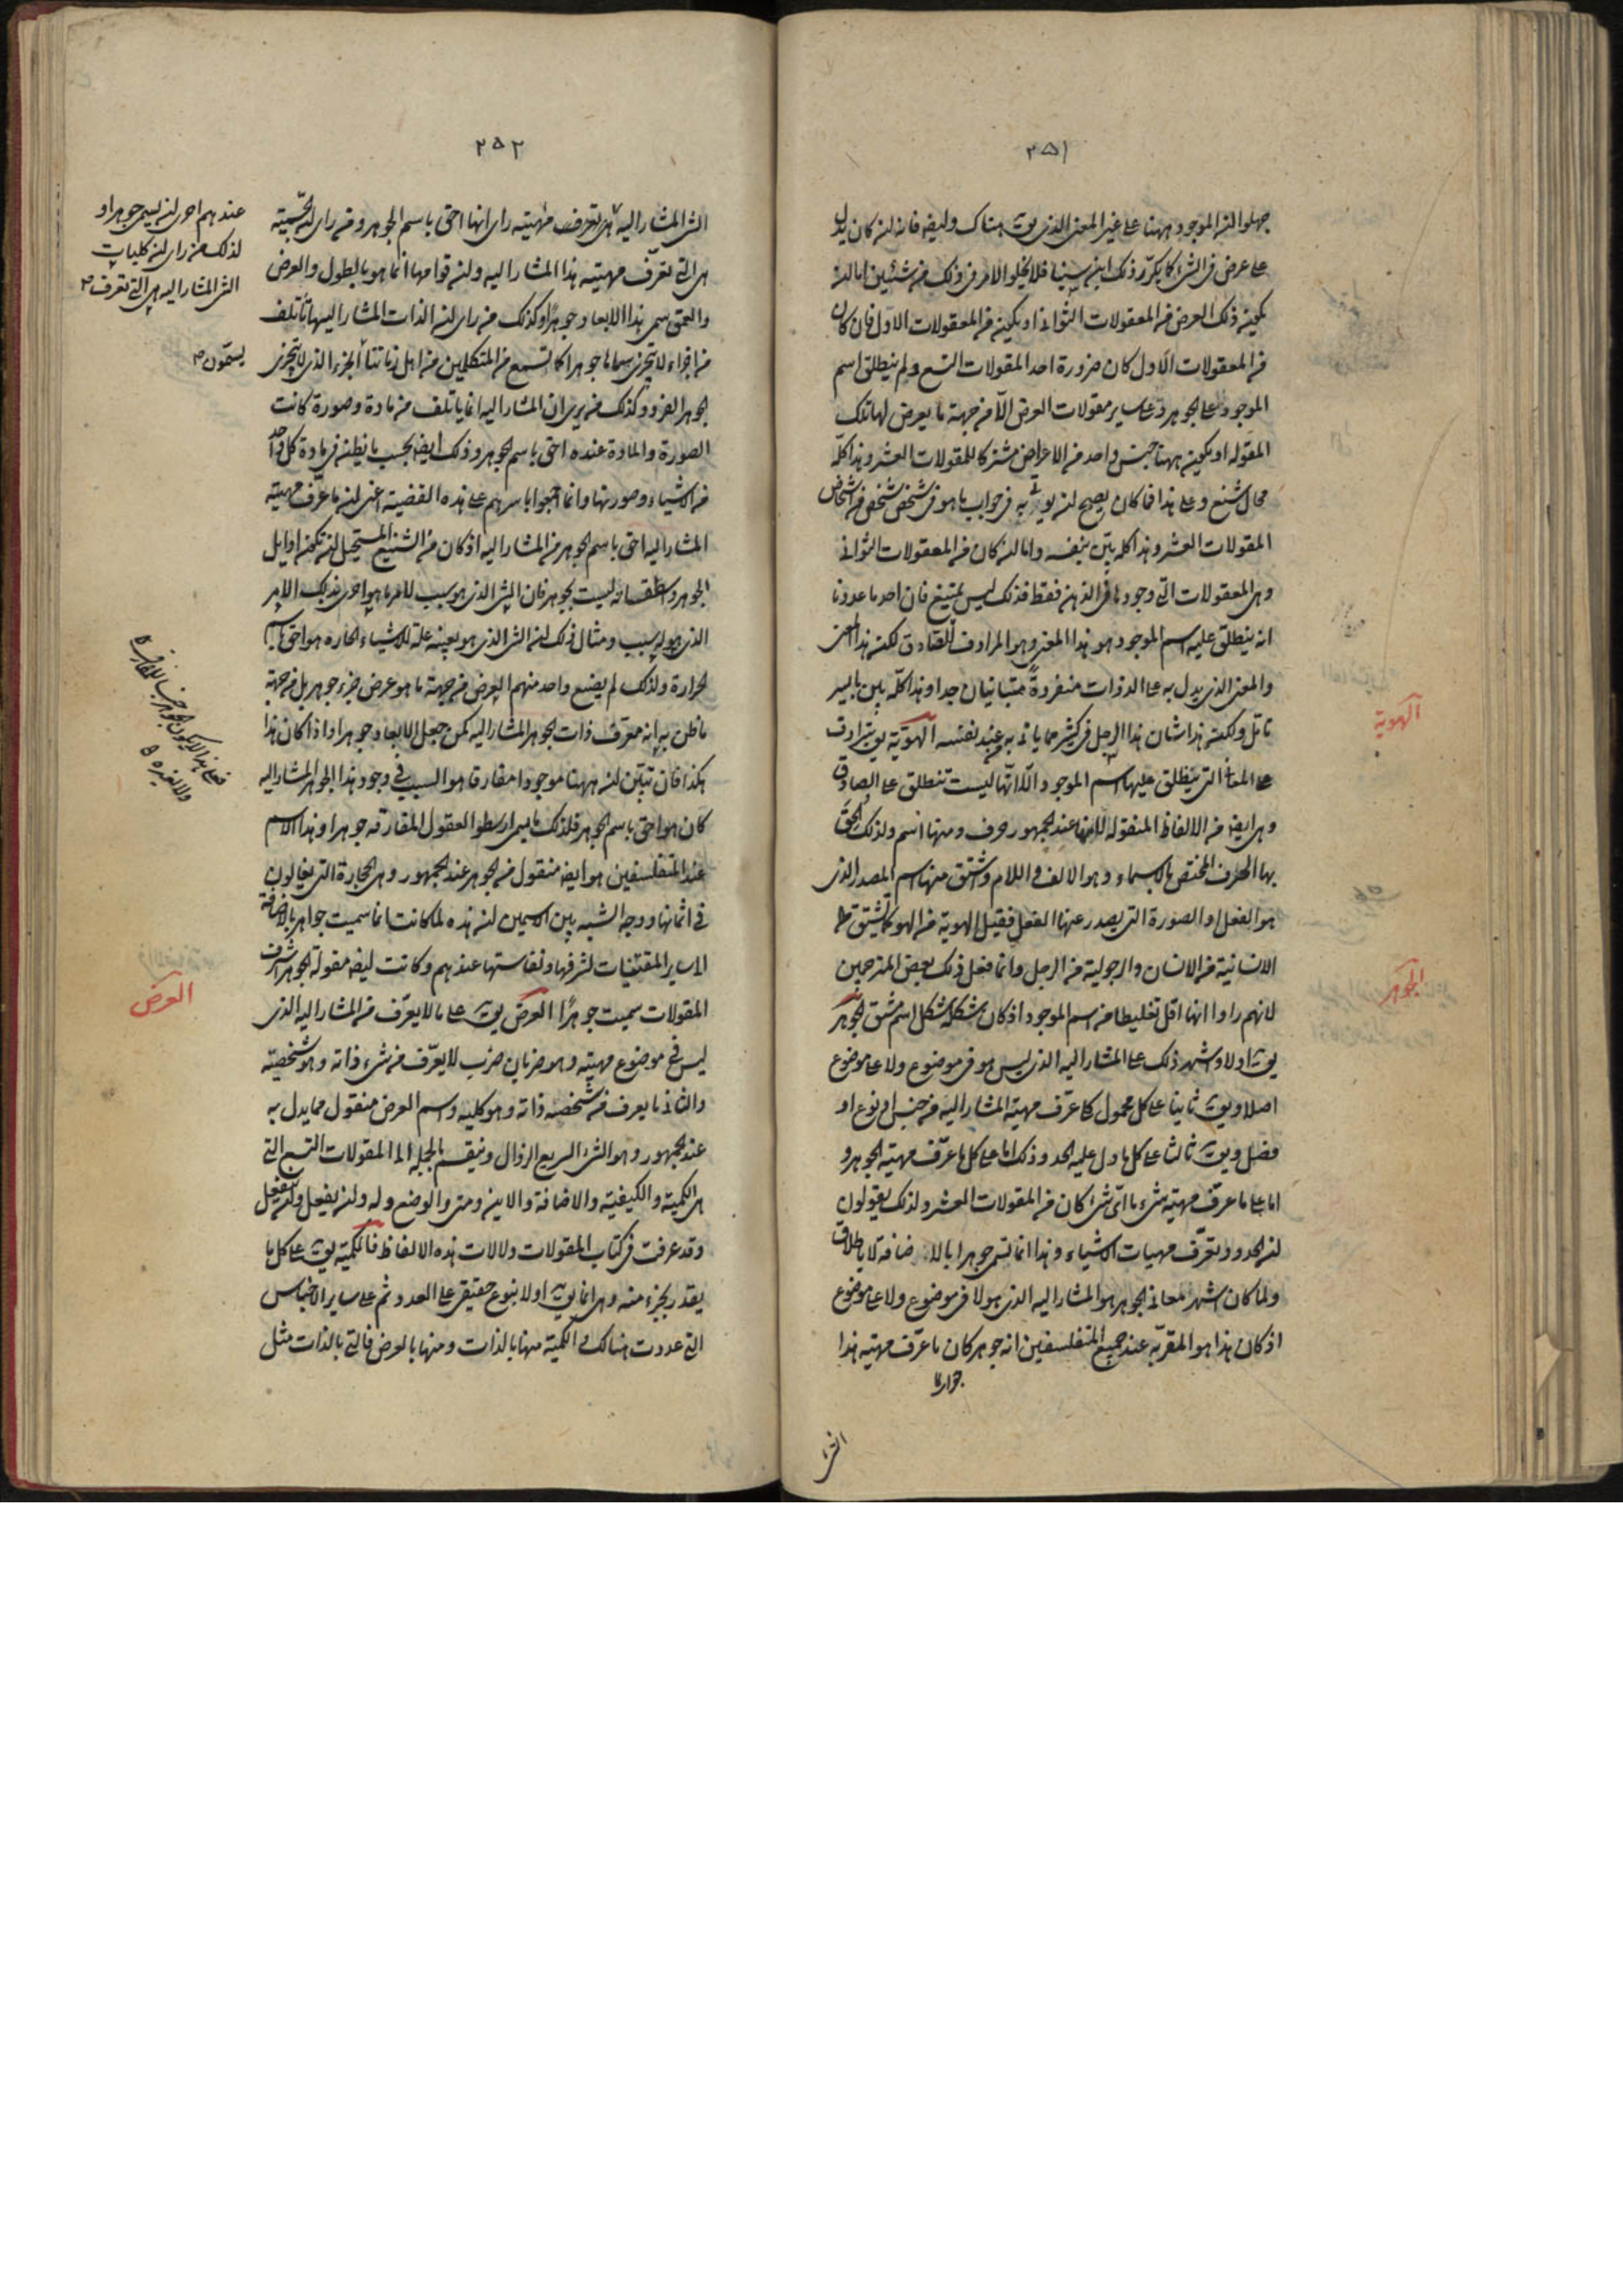 ٢٥١
جهلوا ان الموجود ههنا على غير المعنى الذي يق هناك وليفه فانه ان كان يدل
على عرض في الشئ كما يكرر ذلك ابن سينا فلا يخلو الامر في ذلك من شيئين اما ان
يكون ذلك العرض من المعقولات الثوانى او يكون من المعقولات الاول فان كان
من المعقولات الاول كان ضرورة احد المقولات التسع ولم ينطلق اسم
الموجود على الجوهر وعلى ساير مقولات العرض الا من جهة ما يعرض لها تلك
المقوله او يكون ههنا جنس واحد من الاعراض مشتركا للمقولات العشر وهذا كله
محال شنع وعلى هذا فما كان يصح ان يق به في جواب ما هو في شخص شخص من اشخاص
المقولات العشر وهذا كله بين بنفسه واما ان كان من المعقولات الثوانى
وهي المعقولات التي وجودها في الذهن فقط فذلك ليس يمتنع فان احد ما عددنا
انه ينطلق عليه اسم الموجود هو هذا المعنى وهو المرادف للصادق لكن هذا المعنى
والمعنى الذي يدل به على الذوات منفردة متباينان جدا وهذا كله يبين بايسر
تامل ولكن هذا شان هذا الرجل في كثير مما ياتى به من عند نفسه الهوية يق بترادف
على المعانى التي ينطلق عليها اسم الموجود الا انها ليست تنطلق على الصادق
وهي ايضه من الالفاظ المنقوله لانها عند الجمهور حرف ومنها اسم ولذلك الحق
بها الحرف المختص بالاسماء وهو الالف واللام واشتق منها اسم المصدر الذي
هو الفعل او الصورة التي يصدر عنها الفعل فقيل الهوية من الهو كما تشتق
الانسانية من الانسان والرجولية من الرجل وانما فعل ذلك بعض المترجمين
لانهم راوا انها اقل تغليطا من اسم الموجود اذ كان شكله شكل اسم مشتق الجوهر
يق اولا واشهر ذلك على المشار اليه الذي ليس هو في موضوع ولا على موضوع
اصلا ويق ثانيا على كل محمول كلى عرف مهية المشار اليه من جنس او نوع او
فصل ويق ثالثا على كل ما دل عليه الحد وذلك اما على كل ما عرف مهية الجوهر و
اما على ما عرف مهية شئ ما اى شئ كان من المقولات العشر ولذلك يقولون
ان الحدود تعرف مهيات الاشياء وهذا انما تسمى جوهرا بالاضافة لا باطلاق
ولما كان اشهر معانى الجوهر هو المشار اليه الذي هو لا في موضوع ولا على موضوع
اذ كان هذا هو المقر به عند جميع المتفلسفين انه جوهر كان ما عرف مهية هذا
الهوية
الجوهر
٢٥٢
الشئ المشار اليه راى انها احق باسم الجوهر ومن راى ان الجسمية
هي التي تعرف مهية هذا المشار اليه وان قوامها انما هو بالطول والعرض
والعمق سمى هذا الابعاد جوهرا وكذلك من راى ان الذات المشار اليها تأتلف
من اجزاء لا يتجزى سماها جوهرا كما تسمع من المتكلمين من اهل زماننا الجزء الذي لا يتجزى
الجوهر الفرد وكذلك من يرى ان المشار اليه انما ياتلف من مادة وصورة كانت
الصورة والمادة عنده احق باسم الجوهر وذلك ايضه بحسب ما يظن في مادة كل واحد
من الاشياء وصورتها وانما اجمعوا باسرهم على هذه القضية اعنى ان ما عرف مهية
المشار اليه احق باسم الجوهر من المشار اليه اذ كان من الشنيع المستحيل ان تكون اوايل
الجوهر واسطقساته ليست بجوهر فان الشئ الذي هو سبب لامر ما هو احرى بذلك الامر
الذي هو له سبب ومثال ذلك ان الشئ الذي هو بعينه علة للاشياء الحاره هو احق باسم
الحرارة ولذلك لم يضع واحد منهم العرض من جهة ما هو عرض جزء جوهر بل من جهة
ما ظن به انه معرف ذات الجوهر المشار اليه كمن جعل الابعاد جوهرا واذا كان هذا
هكذا فان تبين ان ههنا موجودا مفارقا هو السبب في وجود هذا الجوهر المشار اليه
كان هو احق باسم الجوهر فلذلك ما يسمى ارسطو العقول المفارقه جوهرا وهذا الاسم
عند المتفلسفين هو ايضه منقول من الجوهر عند الجمهور وهي الحجارة التي يغالون
في اثمانها ووجه الشبه بين الاسمين ان هذه لما كانت انما سميت جواهر بالاضافة
الى ساير المقتنيات لشرفها ونفاستها عندهم وكانت ايضه مقولة الجوهر اشرف
المقولات سميت جوهرا العرض يق على ما لا يعرف من المشار اليه الذي
ليس في موضوع مهيته وهو ضربان ضرب لا يعرف من شئ ذاته وهو شخصيته
والثانى ما يعرف من شخصه ذاته وهو كليه واسم العرض منقول مما يدل به
عند الجمهور وهو الشئ السريع الزوال وينقسم بالجمله الى المقولات التسع التي
هي الكمية والكيفية والاضافة والاين ومتى والوضع وله وان يفعل وان ينفعل
وقد عرفت في كتاب المقولات دلالات هذه الالفاظ فالكمية يق على كل ما
يقدر بجزء منه وهي انما يق اولا بنوع حقيقى على العدد ثم على ساير الاجناس
التي عددت هنالك والكمية منها بالذات ومنها بالعرض فالتي بالذات مثل
عندهم احرى ان يسمى جوهرا و
لذلك من راى ان كليات
الشئ المشار اليه هي التي تعرف
يسمون
العرض